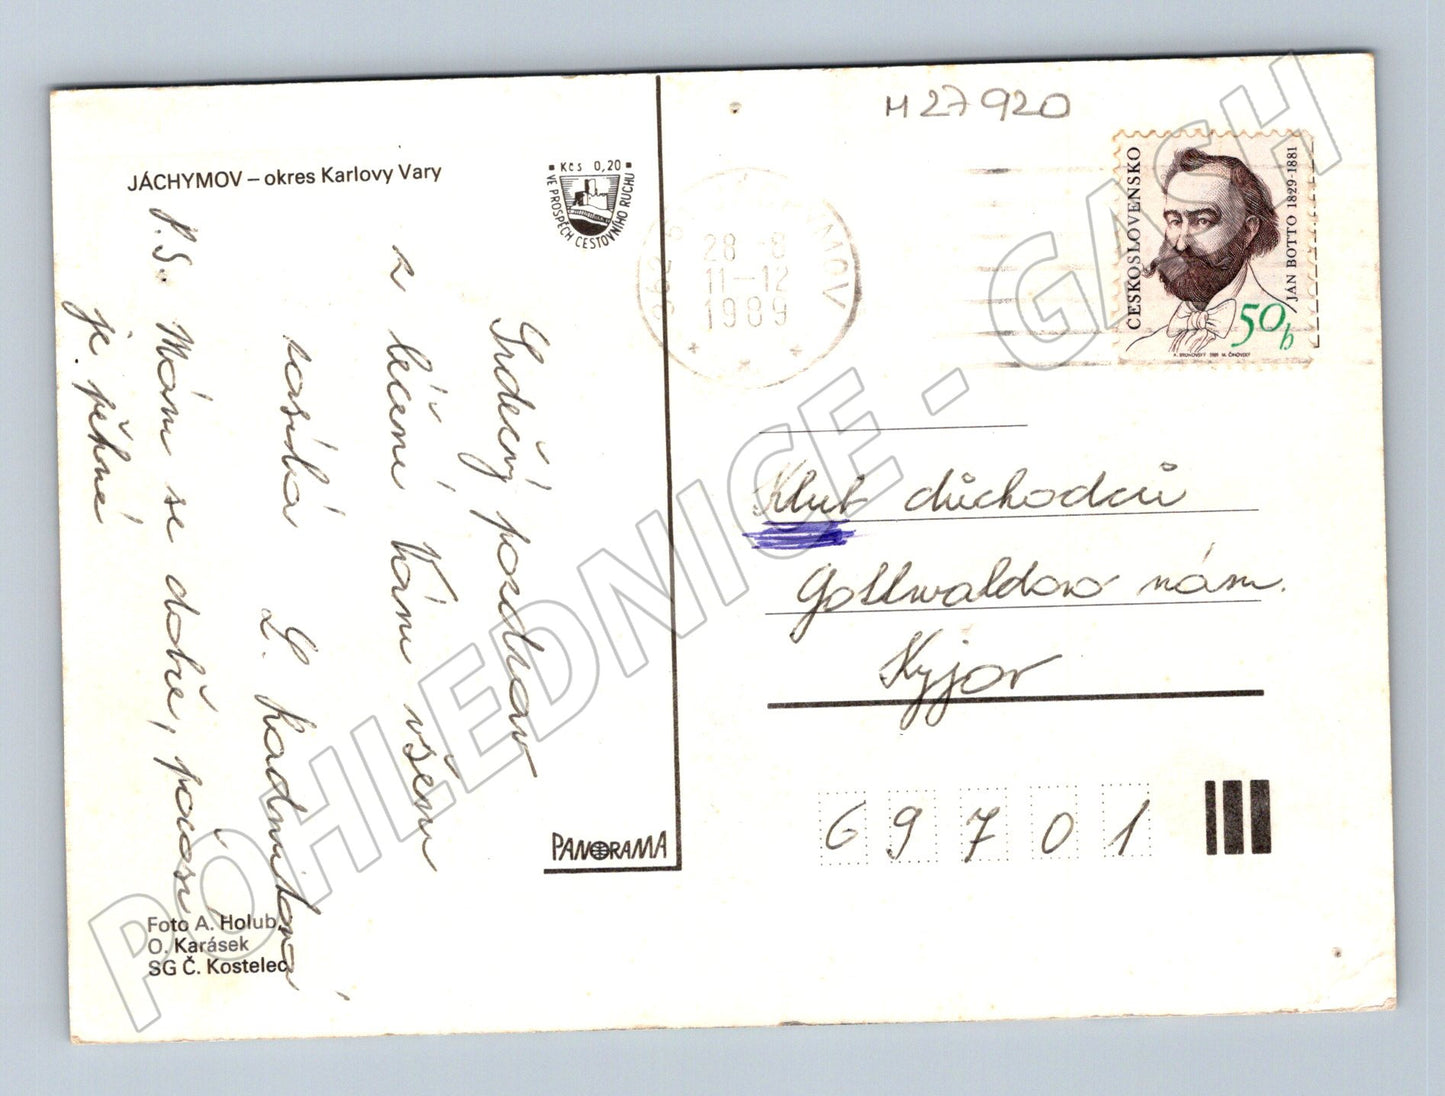 M 27 920
JÁCHYMOV – okres Karlovy Vary
Kčs 0,20
VE PROSPĚCH CESTOVNÍHO RUCHU
Srdečný pozdrav
z léčení Vám všem
zasílá
L. Kadmitová
P.S. Mám se dobře, počasí
je pěkné
28 -8
11-12
1989
ČESKOSLOVENSKO
JÁN BOTTO 1829-1881
50 h
Klub důchodců
Gottwaldovo nám.
Kyjov
6 9 7 0 1
PANORAMA
Foto A. Holub,
O. Karásek
SG Č. Kostelec
POHLEDNICE - GASH